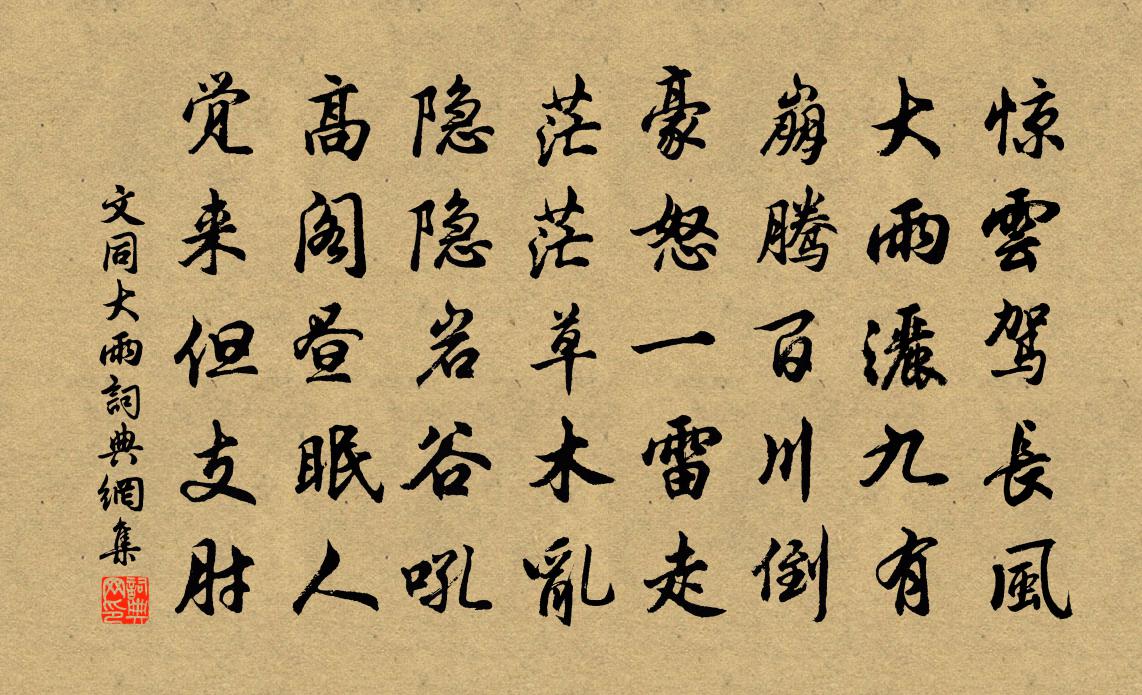 惊雲驾長風
大雨灑九有
崩腾百川倒
豪怒一雷走
茫茫草木亂
隐隐岩谷吼
高阁昼眠人
觉来但支肘
文同大雨詞典網集
詞典网印